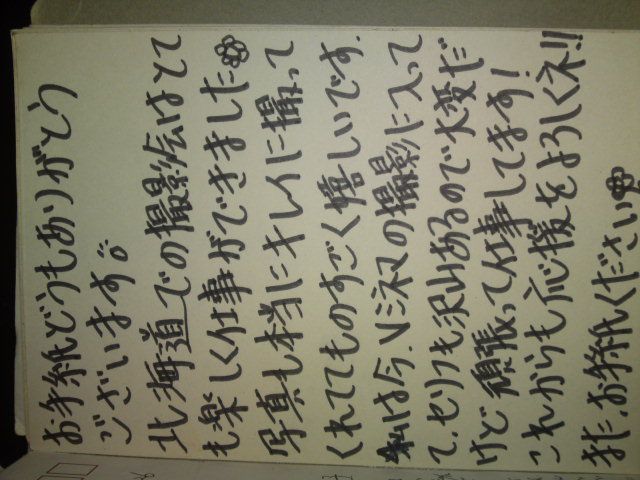 お手紙どうもありがとう
ございます。
北海道での撮影会はとて
も楽しく仕事ができました
写真も本当にキレイに撮って
くれててものすごく嬉しいです.
私は今.Vシネマの撮影に入って
て.セリフも沢山あるので大変だ
けど頑張って仕事してます!
これからも応援をよろしくネ!!
また.お手紙ください